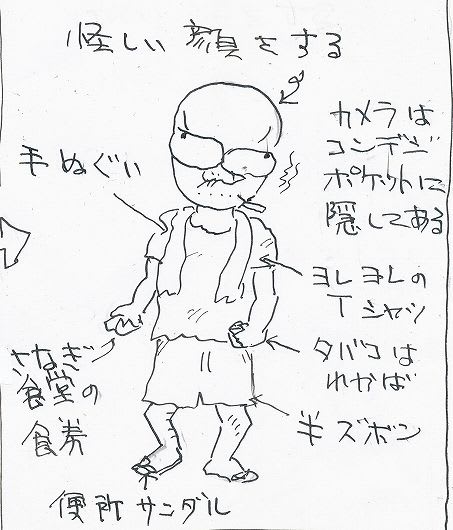 怪しい顔をする
カメラは
コンデジ
ポケットに
隠してある
手ぬぐい
ヨレヨレの
Tシャツ
タバコは
わかば
さなぎ
食堂の
食券
半ズボン
便所サンダル